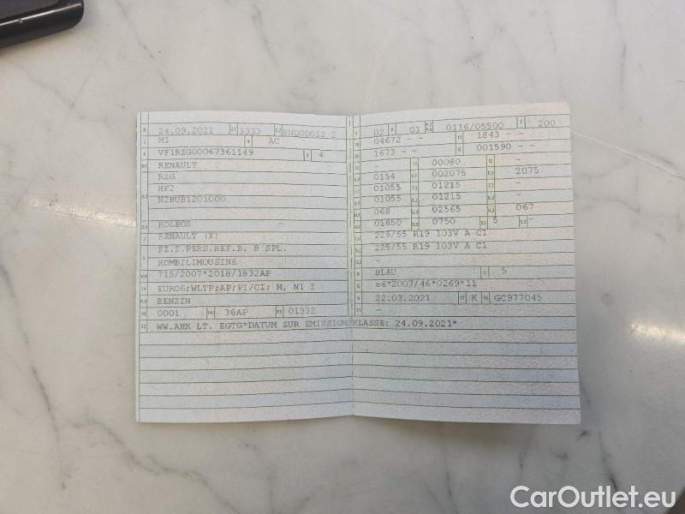 24.09.2021 3333
M1 AC
VF1RZG00067361149 4
RENAULT
RZG
HF2
N2NUB1201000
KOLEOS
RENAULT (F)
FZ.Z.PERS.BEF.B. 8 SPL.
KOMBILIMOUSINE
715/2007*2018/1832AP
EURO6;WLTP;AP;PI/CI; M, N1 I
BENZIN
0001 36AP 01332
WW.AHK LT. EGTG*DATUM ZUR EMISSIONSKLASSE: 24.09.2021*
02 03 0116/05500 200
04672 - - 1843 - -
1673 - - 001590 - -
00080 -
0154 002075 2075
01055 01215 - -
01055 01215 - -
068 02565 067
01650 0750 5 -
225/55 R19 103V A C1
225/55 R19 103V A C1
BLAU 5
e6*2007/46*0269*11
22.03.2021 K GC977045
CarOutlet.eu